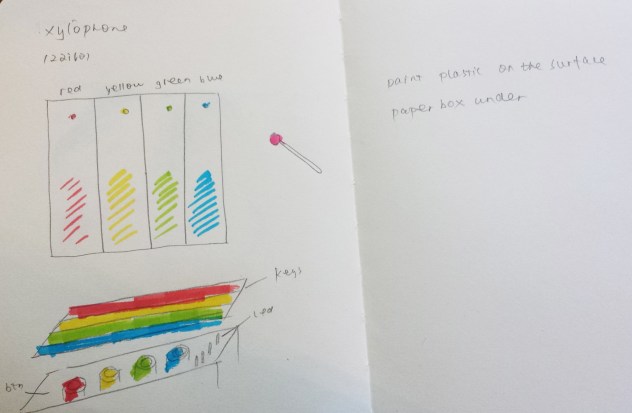 xylophone
red yellow green blue
keys
led
btn
paint plastic on the surface
paper box under